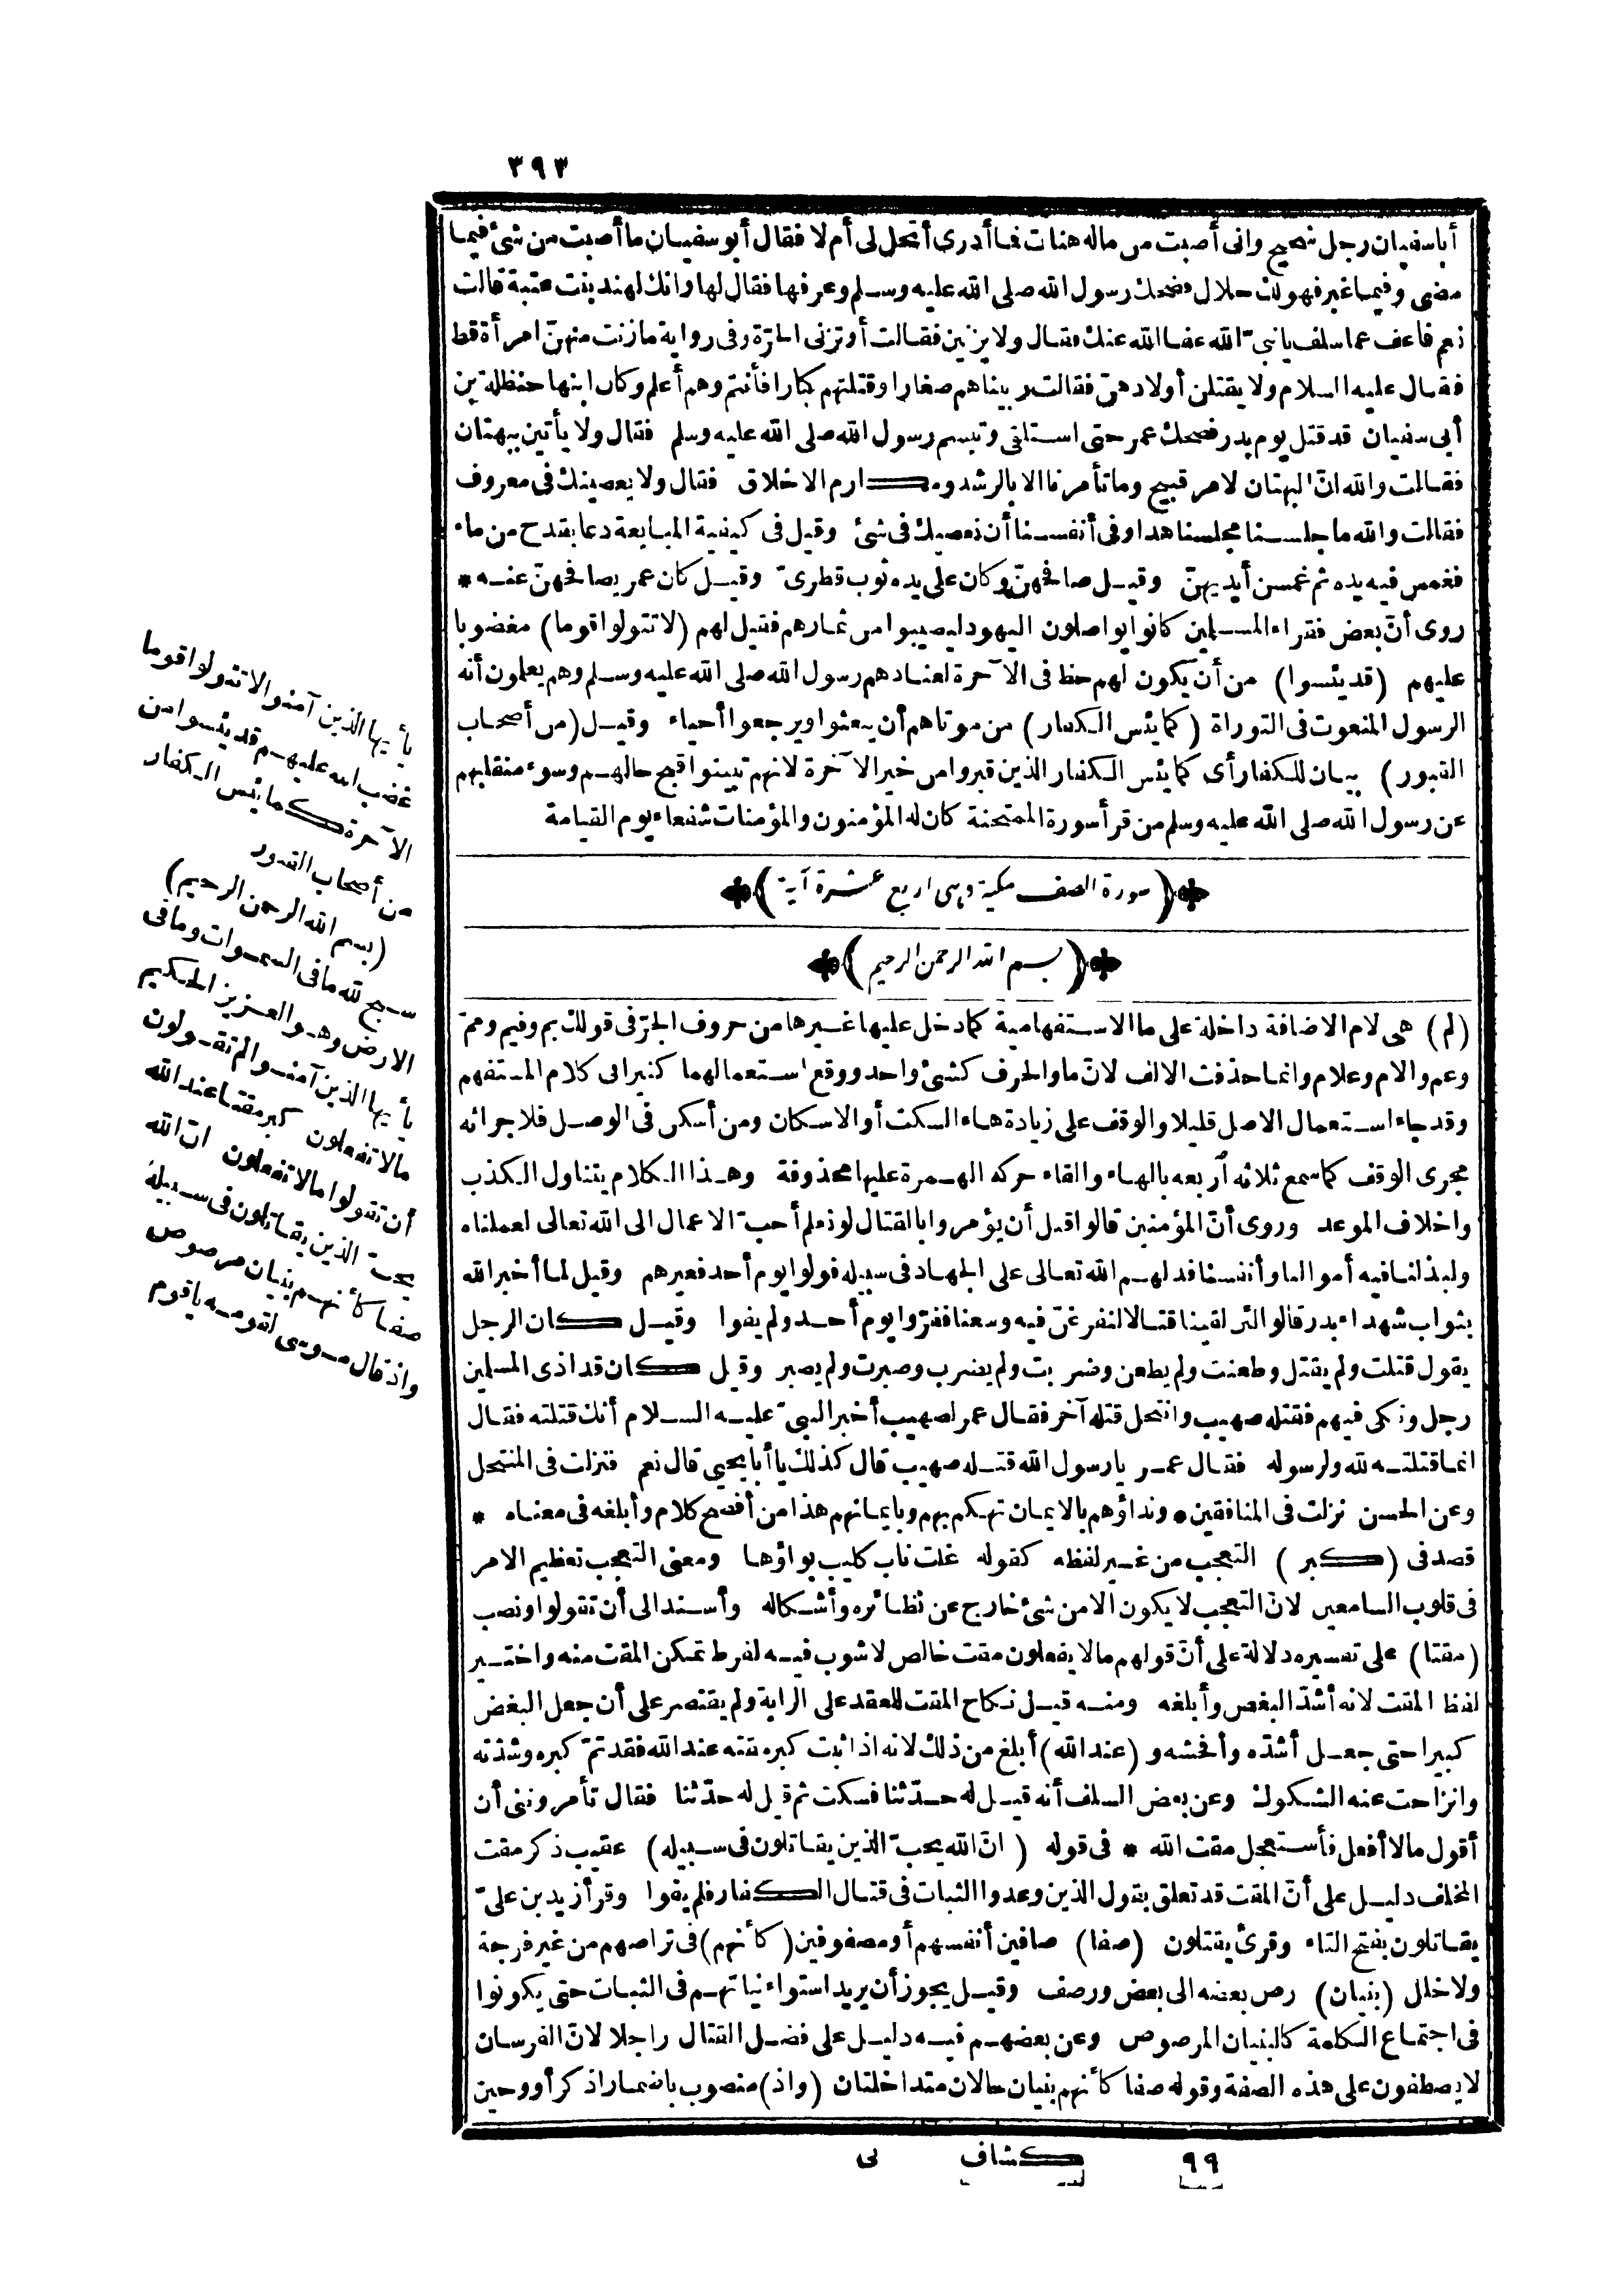 ٣٩٣
أبا سفيان رجل شحيح وانى أصبت من ماله هنات فما أدرى أتحل لى أم لا فقال أبو سفيان ما أصبت من شئ فيما
مضى وفيما غبر فهو لك حلال فضحك رسول الله صلى الله عليه وسلم وعرفها فقال لها وانك لهند بنت عتبة قالت
نعم فاعف عما سلف يا نبىّ الله عفا الله عنك فقال ولا يزنين فقالت أو تزنى الحرّة وفى رواية ما زنت منهنّ امرأة قط
فقال عليه السلام ولا يقتلن أولادهنّ فقالت ربيناهم صغارا وقتلتهم كبارا فأنتم وهم أعلم وكان ابنها حنظلة بن
أبى سفيان قد قتل يوم بدر فضحك عمر حتى استلقى وتبسم رسول الله صلى الله عليه وسلم فقال ولا يأتين ببهتان
فقالت والله انّ البهتان لامر قبيح وما تأمرنا الا بالرشد ومكارم الاخلاق فقال ولا يعصينك فى معروف
فقالت والله ما جلسنا مجلسنا هذا وفى أنفسنا أن نعصيك فى شئ وقيل فى كيفية المبايعة دعا بقدح من ماء
فغمس فيه يده ثم غمسن أيديهنّ وقيل صافحهنّ وكان على يده ثوب قطرىّ وقيل كان عمر يصافحهنّ عنه *
روى أنّ بعض فقراء المسلمين كانوا يواصلون اليهود ليصيبوا من ثمارهم فقيل لهم (لا تتولوا قوما) مغضوبا
عليهم (قد يئسوا) من أن يكون لهم حظ فى الآخرة لعنادهم رسول الله صلى الله عليه وسلم وهم يعلمون أنه
الرسول المنعوت فى التوراة (كما يئس الكفار) من موتاهم أن يبعثوا ويرجعوا أحياء وقيل (من أصحاب
القبور) بيان للكفار أى كما يئس الكفار الذين قبروا من خير الآخرة لانهم تبينوا قبح حالهم وسوء منقلبهم
عن رسول الله صلى الله عليه وسلم من قرأ سورة الممتحنة كان له المؤمنون والمؤمنات شفعاء يوم القيامة
(سورة الصف مكية وهى اربع عشرة آية)
(بسم الله الرحمن الرحيم)
(لم) هى لام الاضافة داخلة على ما الاستفهامية كما دخل عليها غيرها من حروف الجرّ فى قولك بم وفيم وممّ
وعم والام وعلام وانما حذفت الالف لانّ ما والحرف كشئ واحد ووقع استعمالهما كثيرا فى كلام المستفهم
وقد جاء استعمال الاصل قليلا والوقف على زيادة هاء السكت أو الاسكان ومن أسكن فى الوصل فلاجرائه
مجرى الوقف كما سمع ثلاثه أربعه بالهاء والقاء حركة الهمزة عليها محذوفة وهذا الكلام يتناول الكذب
واخلاف الموعد وروى أنّ المؤمنين قالوا قبل أن يؤمروا بالقتال لو نعلم أحبّ الاعمال الى الله تعالى لعملناه
ولبذلنا فيه أموالنا وأنفسنا فدلهم الله تعالى على الجهاد فى سبيله فولوا يوم أحد فعيرهم وقيل لما أخبر الله
بثواب شهداء بدر قالوا لئن لقينا قتالا لنفرغنّ فيه وسعنا ففرّوا يوم أحد ولم يفوا وقيل كان الرجل
يقول قتلت ولم يقتل وطعنت ولم يطعن وضربت ولم يضرب وصبرت ولم يصبر وقيل كان قد اذى المسلمين
رجل ونكى فيهم فقتله صهيب وانتحل قتله آخر فقال عمر لصهيب أخبر النبىّ عليه السلام أنك قتلته فقال
انما قتلته لله ولرسوله فقال عمر يا رسول الله قتله صهيب قال كذلك يا أبا يحيى قال نعم فنزلت فى المنتحل
وعن الحسن نزلت فى المنافقين * ونداؤهم بالايمان تهكم بهم وبايمانهم هذا من أفصح كلام وأبلغه فى معناه *
قصد فى (كبر) التعجب من غير لفظه كقوله غلت ناب كليب بواؤها ومعنى التعجب تعظيم الامر
فى قلوب السامعين لانّ التعجب لا يكون الا من شئ خارج عن نظائره وأشكاله وأسند الى أن تقولوا ونصب
(مقتا) على تفسيره دلالة على أنّ قولهم ما لا يفعلون مقت خالص لا شوب فيه لفرط تمكن المقت منه واختير
لفظ المقت لانه أشدّ البغض وأبلغه ومنه قيل نكاح المقت للعقد على الرابة ولم يقتصر على أن جعل البغض
كبيرا حتى جعل أشدّه وأفحشه و (عند الله) أبلغ من ذلك لانه اذا ثبت كبر مقته عند الله فقد تمّ كبره وشدّته
وانزاحت عنه الشكوك وعن بعض السلف أنه قيل له حدّثنا فسكت ثم قيل له حدّثنا فقال تأمروننى أن
أقول ما لا أفعل فأستعجل مقت الله * فى قوله (انّ الله يحبّ الذين يقاتلون فى سبيله) عقيب ذكر مقت
المخلف دليل على أنّ المقت قد تعلق بقول الذين وعدوا الثبات فى قتال الكفار فلم يفوا وقرأ زيد بن علىّ
يقاتلون بفتح التاء وقرئ يقتلون (صفا) صافين أنفسهم أو مصفوفين (كأنهم) فى تراصهم من غير فرجة
ولا خلل (بنيان) رص بعضه الى بعض ورصف وقيل يجوز أن يريد استواء نياتهم فى الثبات حتى يكونوا
فى اجتماع الكلمة كالبنيان المرصوص وعن بعضهم فيه دليل على فضل القتال راجلا لانّ الفرسان
لا يصطفون على هذه الصفة وقوله صفا كأنهم بنيان حالان متداخلتان (واذ) منصوب باضمار اذكر أو وحين
يأيها الذين آمنوا لا تتولوا قوما
غضب الله عليهم قد يئسوا من
الآخرة كما يئس الكفار
من أصحاب القبور
(بسم الله الرحمن الرحيم)
سبح لله ما فى السموات وما فى
الارض وهو العزيز الحكيم
يأيها الذين آمنوا لم تقولون
ما لا تفعلون كبر مقتا عند الله
أن تقولوا ما لا تفعلون انّ الله
يحبّ الذين يقاتلون فى سبيله
صفا كأنهم بنيان مرصوص
واذ قال موسى لقومه يا قوم
٩٩ كشاف نى